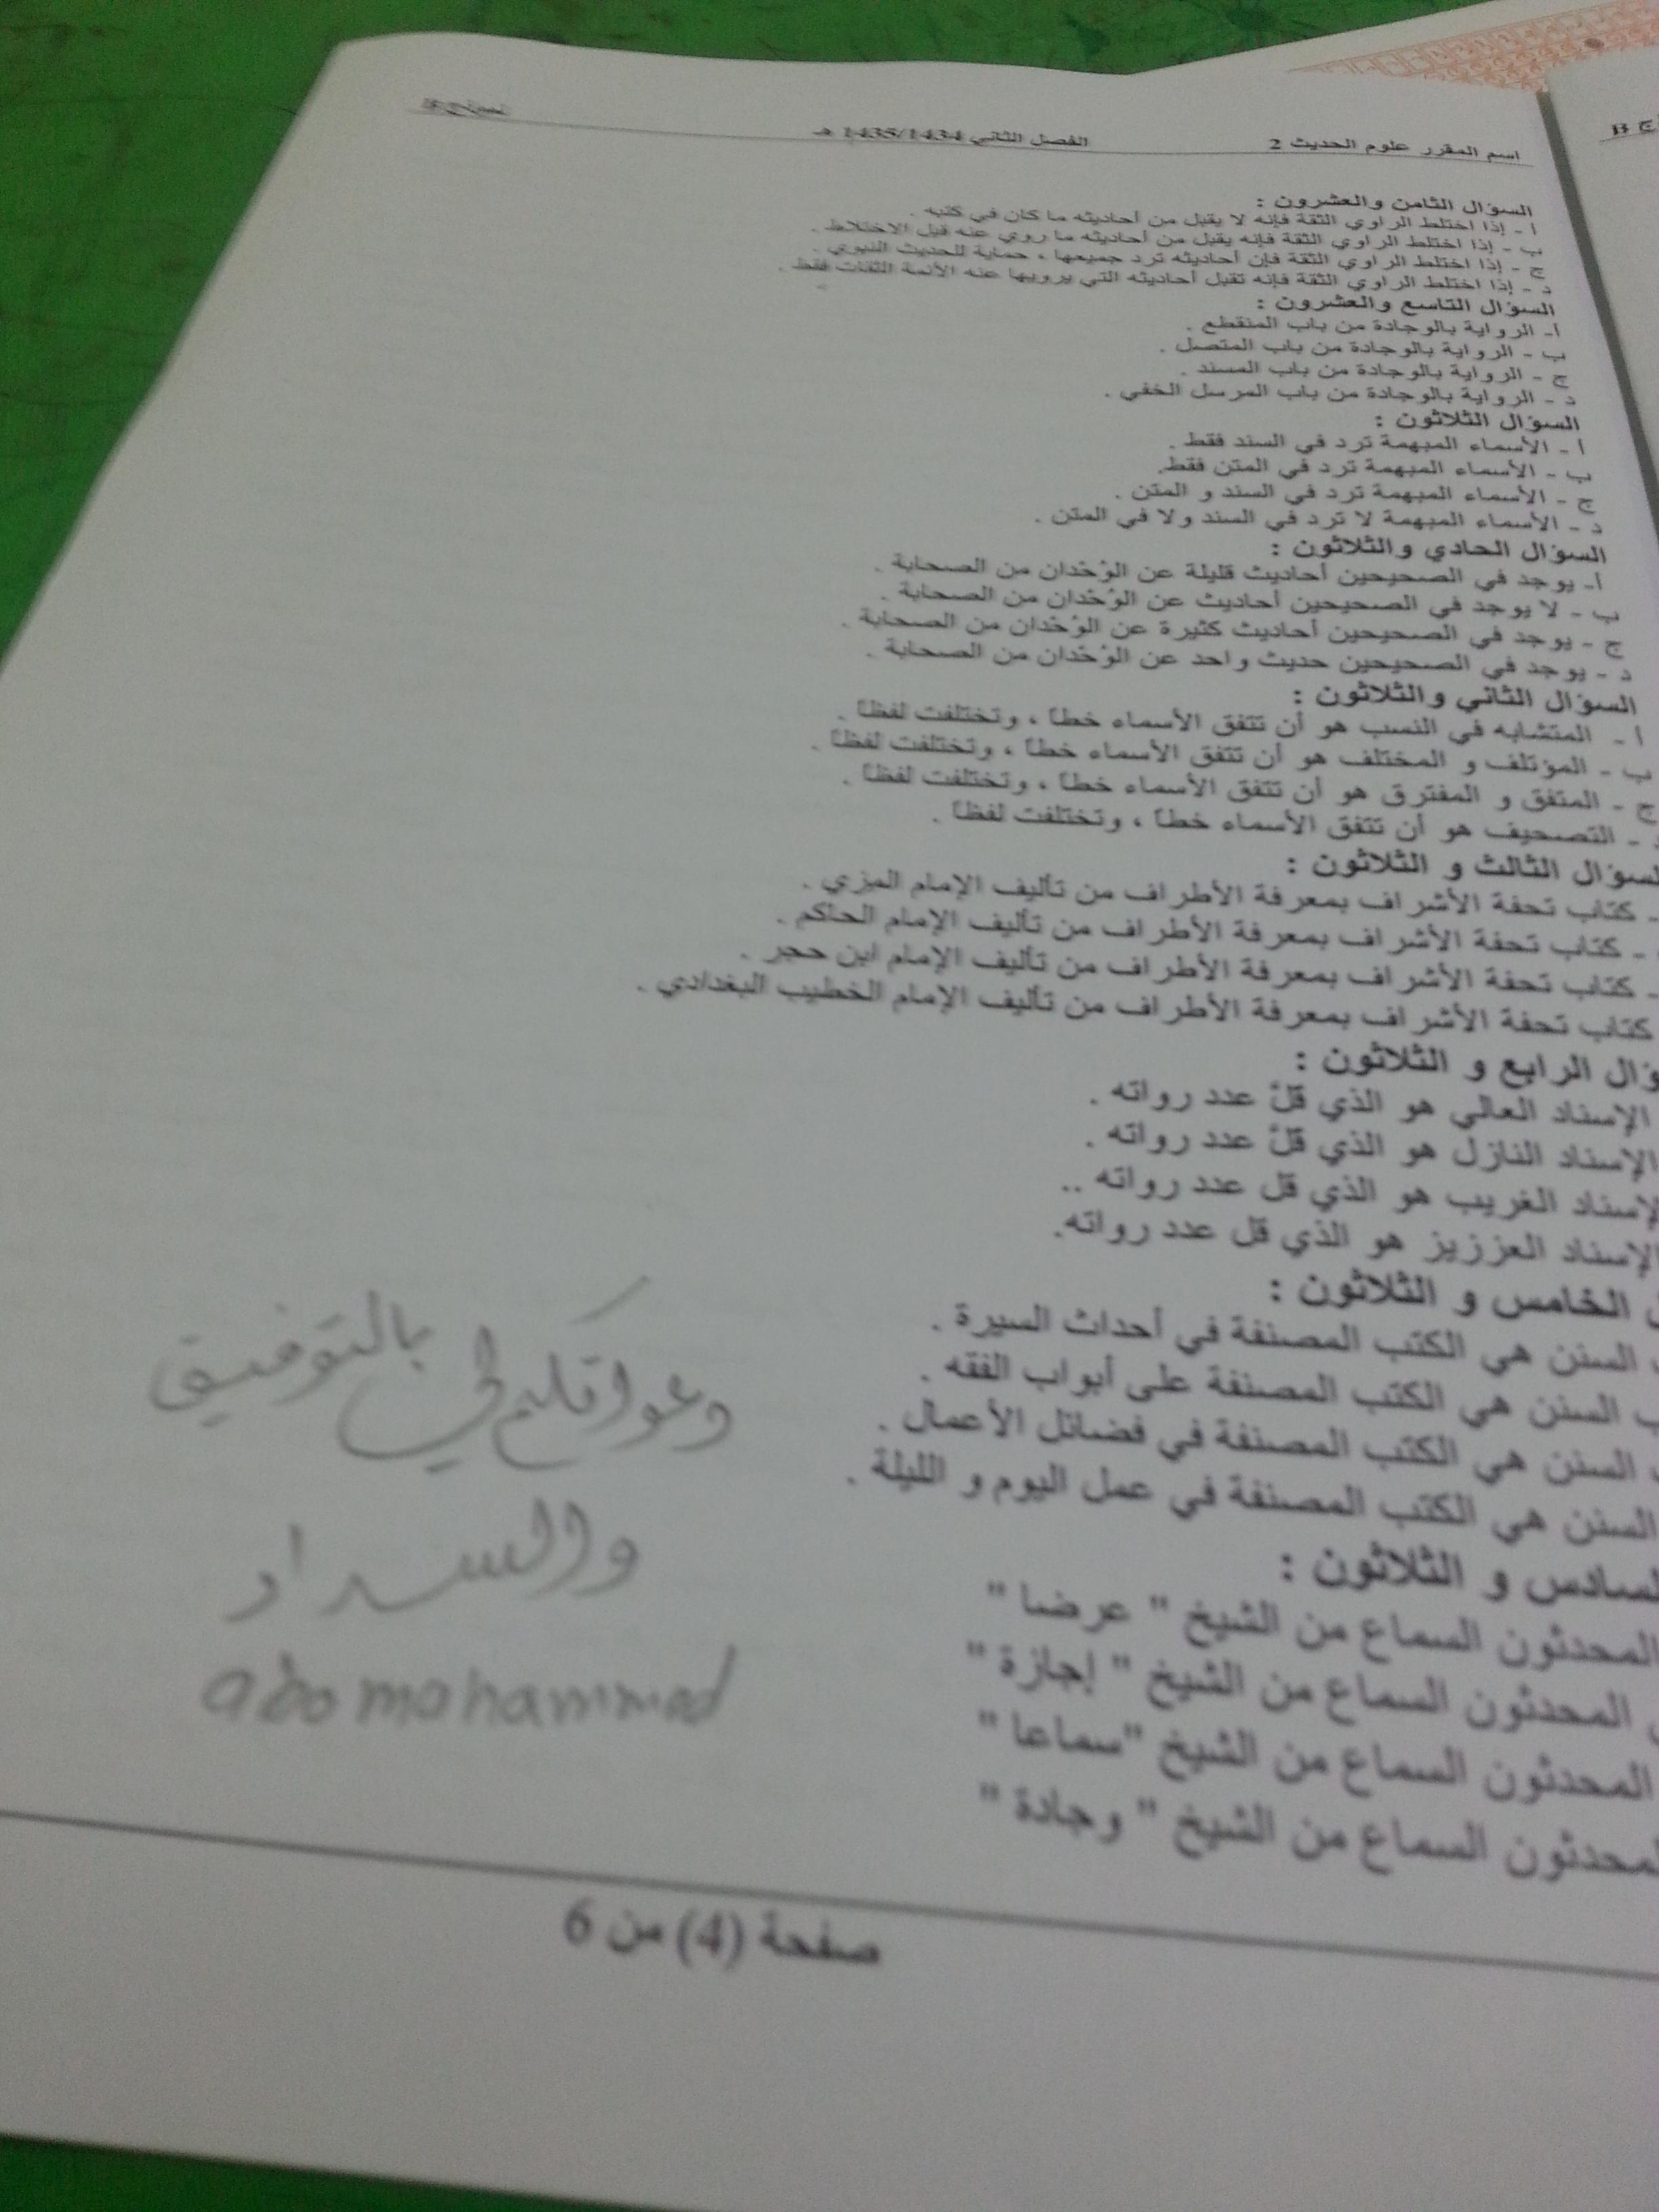 اسم المقرر علوم الحديث 2 الفصل الثاني 1435/1434 هـ
السؤال الثامن والعشرون :
أ - إذا اختلط الراوي الثقة فإنه لا يقبل من أحاديثه ما كان في كتبه .
ب - إذا اختلط الراوي الثقة فإنه يقبل من أحاديثه ما روي عنه قبل الاختلاط .
ج - إذا اختلط الراوي الثقة فإن أحاديثه ترد جميعها ، حماية للحديث النبوي .
د - إذا اختلط الراوي الثقة فإنه تقبل أحاديثه التي يرويها عنه الأئمة الثقات فقط .
السؤال التاسع والعشرون :
أ- الرواية بالوجادة من باب المنقطع .
ب - الرواية بالوجادة من باب المتصل .
ج - الرواية بالوجادة من باب المسند .
د - الرواية بالوجادة من باب المرسل الخفي .
السؤال الثلاثون :
أ - الأسماء المبهمة ترد في السند فقط .
ب - الأسماء المبهمة ترد في المتن فقط.
ج - الأسماء المبهمة ترد في السند و المتن .
د - الأسماء المبهمة لا ترد في السند ولا في المتن .
السؤال الحادي والثلاثون :
أ- يوجد في الصحيحين أحاديث قليلة عن الوُحْدان من الصحابة .
ب - لا يوجد في الصحيحين أحاديث عن الوُحْدان من الصحابة .
ج - يوجد في الصحيحين أحاديث كثيرة عن الوُحْدان من الصحابة .
د - يوجد في الصحيحين حديث واحد عن الوُحْدان من الصحابة .
السؤال الثاني والثلاثون :
أ - المتشابه في النسب هو أن تتفق الأسماء خطاً ، وتختلفت لفظاً .
ب - المؤتلف و المختلف هو أن تتفق الأسماء خطاً ، وتختلفت لفظاً .
ج - المتفق و المفترق هو أن تتفق الأسماء خطاً ، وتختلفت لفظاً .
- التصحيف هو أن تتفق الأسماء خطاً ، وتختلفت لفظاً .
لسؤال الثالث و الثلاثون :
- كتاب تحفة الأشراف بمعرفة الأطراف من تأليف الإمام المزي .
- كتاب تحفة الأشراف بمعرفة الأطراف من تأليف الإمام الحاكم .
- كتاب تحفة الأشراف بمعرفة الأطراف من تأليف الإمام ابن حجر .
كتاب تحفة الأشراف بمعرفة الأطراف من تأليف الإمام الخطيب البغدادي .
ؤال الرابع و الثلاثون :
الإسناد العالي هو الذي قلَّ عدد رواته .
الإسناد النازل هو الذي قلَّ عدد رواته .
لإسناد الغريب هو الذي قل عدد رواته ..
لإسناد العززيز هو الذي قل عدد رواته.
الخامس و الثلاثون :
السنن هي الكتب المصنفة في أحداث السيرة .
ب السنن هي الكتب المصنفة على أبواب الفقه .
السنن هي الكتب المصنفة في فضائل الأعمال .
السنن هي الكتب المصنفة في عمل اليوم و الليلة .
لسادس و الثلاثون :
المحدثون السماع من الشيخ " عرضا "
المحدثون السماع من الشيخ " إجازة "
المحدثون السماع من الشيخ "سماعا "
لمحدثون السماع من الشيخ " وجادة "
دعواتكم لي بالتوفيق
والسداد
abo mohammed
صفحة (4) من 6